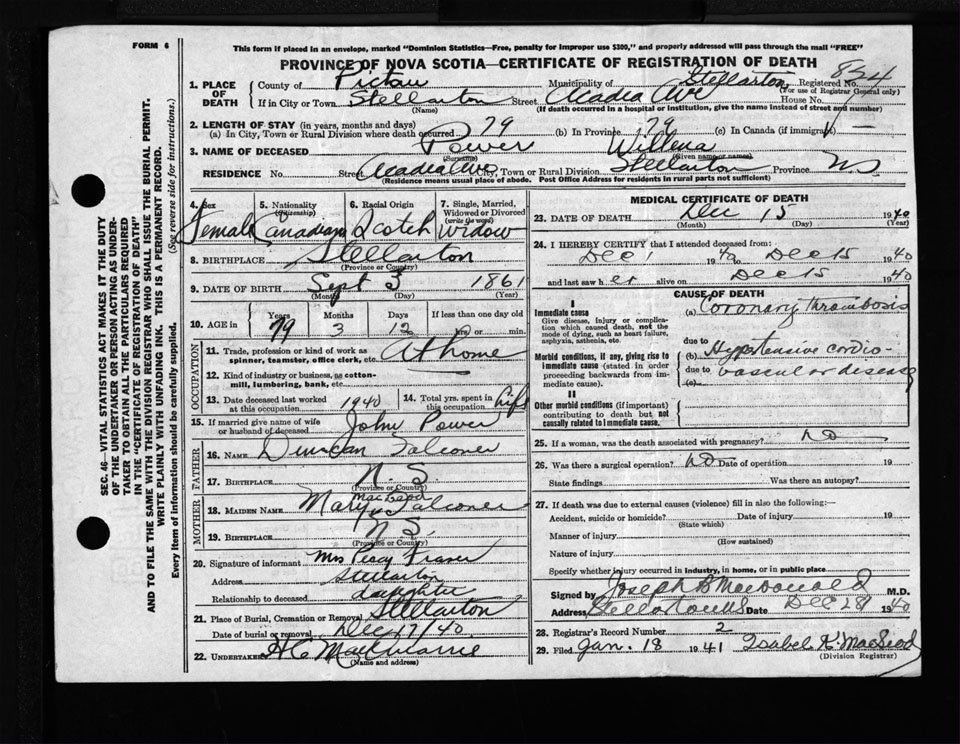 FORM 6
This form if placed in an envelope, marked "Dominion Statistics—Free, penalty for improper use $300," and properly addressed will pass through the mail "FREE"
PROVINCE OF NOVA SCOTIA—CERTIFICATE OF REGISTRATION OF DEATH
SEC. 46—VITAL STATISTICS ACT MAKES IT THE DUTY
OF THE UNDERTAKER OR PERSON ACTING AS UNDER-
TAKER TO OBTAIN ALL THE PARTICULARS REQUIRED
IN THE "CERTIFICATE OF REGISTRATION OF DEATH"
AND TO FILE THE SAME WITH THE DIVISION REGISTRAR WHO SHALL ISSUE THE BURIAL PERMIT.
WRITE PLAINLY WITH UNFADING INK. THIS IS A PERMANENT RECORD.
Every item of information should be carefully supplied. (See reverse side for instructions.)
1. PLACE OF DEATH County of Pictou Municipality of Stellarton Registered No. 834
(For use of Registrar General only)
If in City or Town Stellarton Street Acadia Ave House No.
(Name) (If death occurred in a hospital or institution, give the name instead of street and number)
2. LENGTH OF STAY (in years, months and days)
(a) In City, Town or Rural Division where death occurred 79 (b) In Province 79 (c) In Canada (if immigrant) —
3. NAME OF DECEASED Power Willena
(Surname) (Given name or names)
RESIDENCE No. Street Acadia Ave City, Town or Rural Division Stellarton Province N.S.
(Residence means usual place of abode. Post Office Address for residents in rural parts not sufficient)
4. Sex Female
5. Nationality (Citizenship) Canadian
6. Racial Origin Scotch
7. Single, Married, Widowed or Divorced (write the word) Widow
8. BIRTHPLACE Stellarton
(Province or Country)
9. DATE OF BIRTH Sept 3 1861
(Month) (Day) (Year)
10. AGE in Years 79 Months 3 Days 12 If less than one day old hrs. or min.
OCCUPATION
11. Trade, profession or kind of work as spinner, teamster, office clerk, etc. At home
12. Kind of industry or business, as cotton-mill, lumbering, bank, etc.
13. Date deceased last worked at this occupation 1940
14. Total yrs. spent in this occupation life
15. If married give name of wife or husband of deceased John Power
FATHER
16. NAME Duncan Falconer
17. BIRTHPLACE N.S.
(Province or Country)
MOTHER
18. MAIDEN NAME Mary MacLeod Falconer
19. BIRTHPLACE N S
(Province or Country)
20. Signature of informant Mrs Percy Fraser
Address Stellarton
Relationship to deceased daughter
21. Place of Burial, Cremation or Removal Stellarton
Date of burial or removal Dec 17/40
22. UNDERTAKER
(Name and address)
MEDICAL CERTIFICATE OF DEATH
23. DATE OF DEATH Dec 15 1940
(Month) (Day) (Year)
24. I HEREBY CERTIFY that I attended deceased from:
Dec 1 1940 to Dec 15 1940
and last saw h er alive on Dec 15 1940
CAUSE OF DEATH
I
Immediate cause
Give disease, injury or complication which caused death, not the mode of dying, such as heart failure, asphyxia, asthenia, etc.
(a) Coronary Thrombosis
due to
Morbid conditions, if any, giving rise to immediate cause (stated in order proceeding backwards from immediate cause).
(b) Hypertensive cardio-
due to vascular disease
(c)
II
Other morbid conditions (if important) contributing to death but not causally related to immediate cause.
25. If a woman, was the death associated with pregnancy? no
26. Was there a surgical operation? no Date of operation 19
State findings Was there an autopsy?
27. If death was due to external causes (violence) fill in also the following:—
Accident, suicide or homicide? Date of injury 19
(State which)
Manner of injury
(How sustained)
Nature of injury
Specify whether injury occurred in industry, in home, or in public place
Signed by Joseph B MacDonald M.D.
Address Stellarton NS Date Dec 28 1940
28. Registrar's Record Number 2
29. Filed Jan. 18 1941 Isabel K. MacLeod
(Division Registrar)